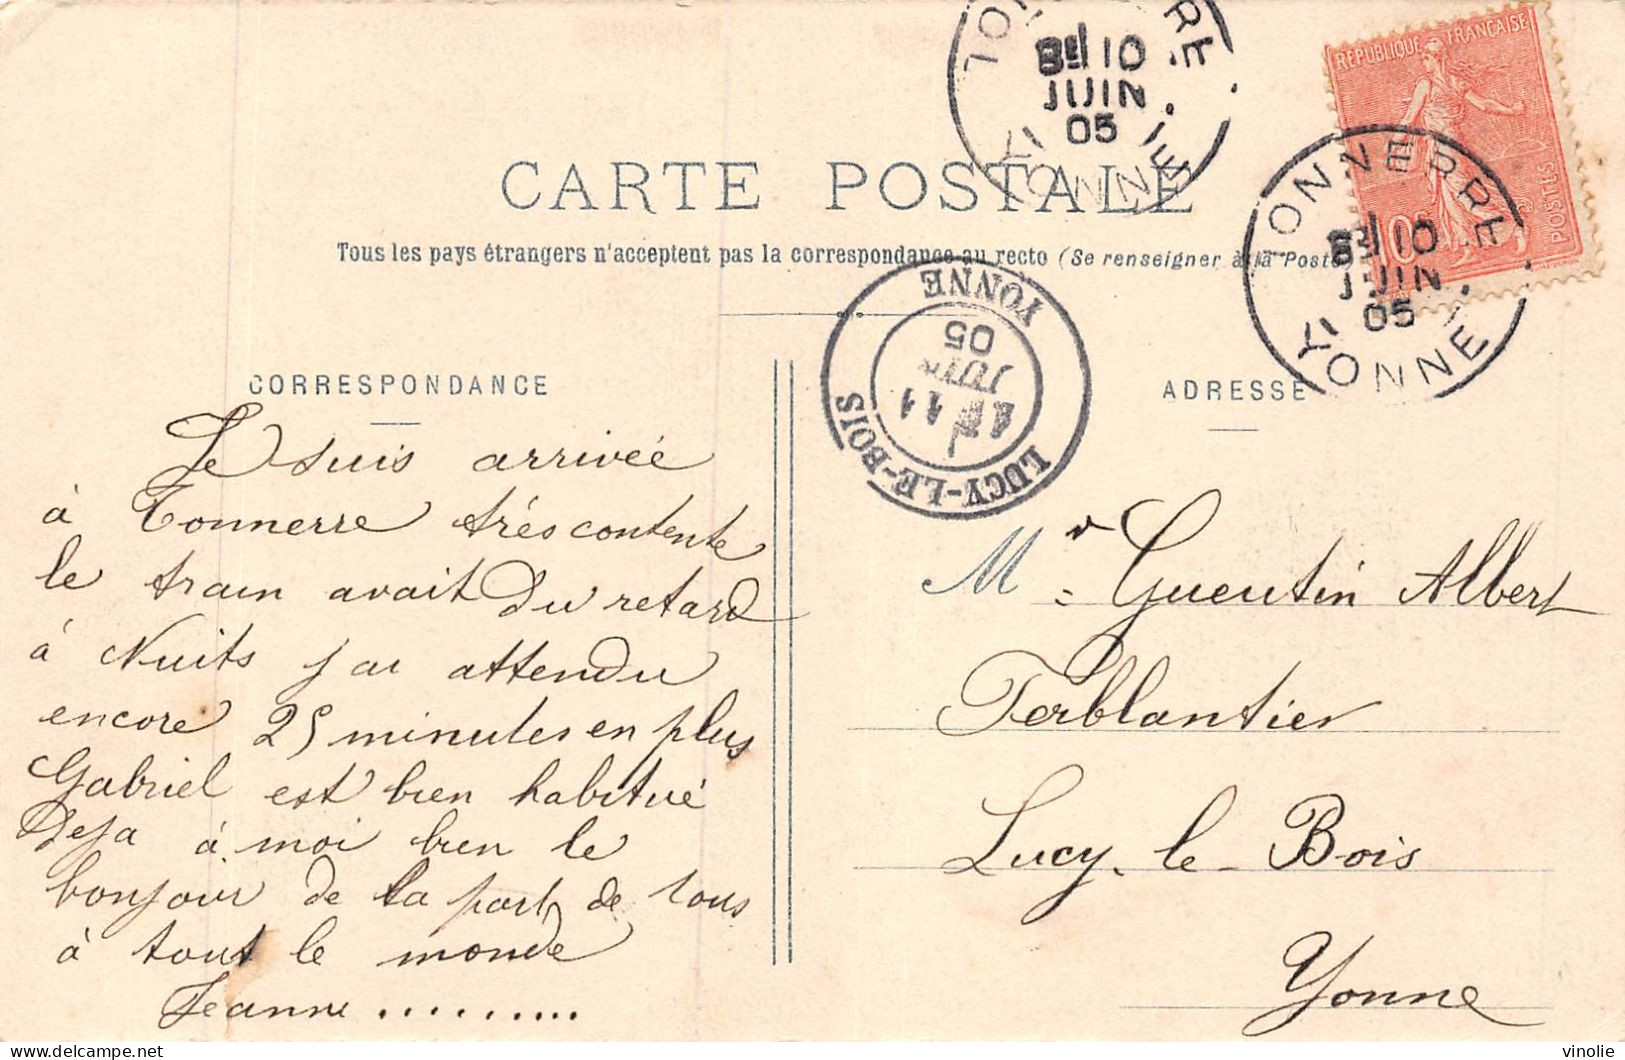 CARTE POSTALE
Tous les pays étrangers n'acceptent pas la correspondance au recto (Se renseigner à la Poste
CORRESPONDANCE
Je suis arrivée
à Tonnerre trés contente
le train avait du retard
à Nuits j'ai attendu
encore 25 minutes en plus
Gabriel est bien habitué
deja à moi bien le
bonjour de la part de tous
à tout le monde
Jeanne ..........
ADRESSE
Mr Guentin Albert
Ferblantier
Lucy-le-Bois
Yonne
TONNERRE
10
JUIN
05
YONNE
REPUBLIQUE FRANÇAISE
POSTES
10c
TONNERRE
10
JUIN
05
YONNE
LUCY-LE-BOIS
11
JUIN
05
YONNE
vinolie